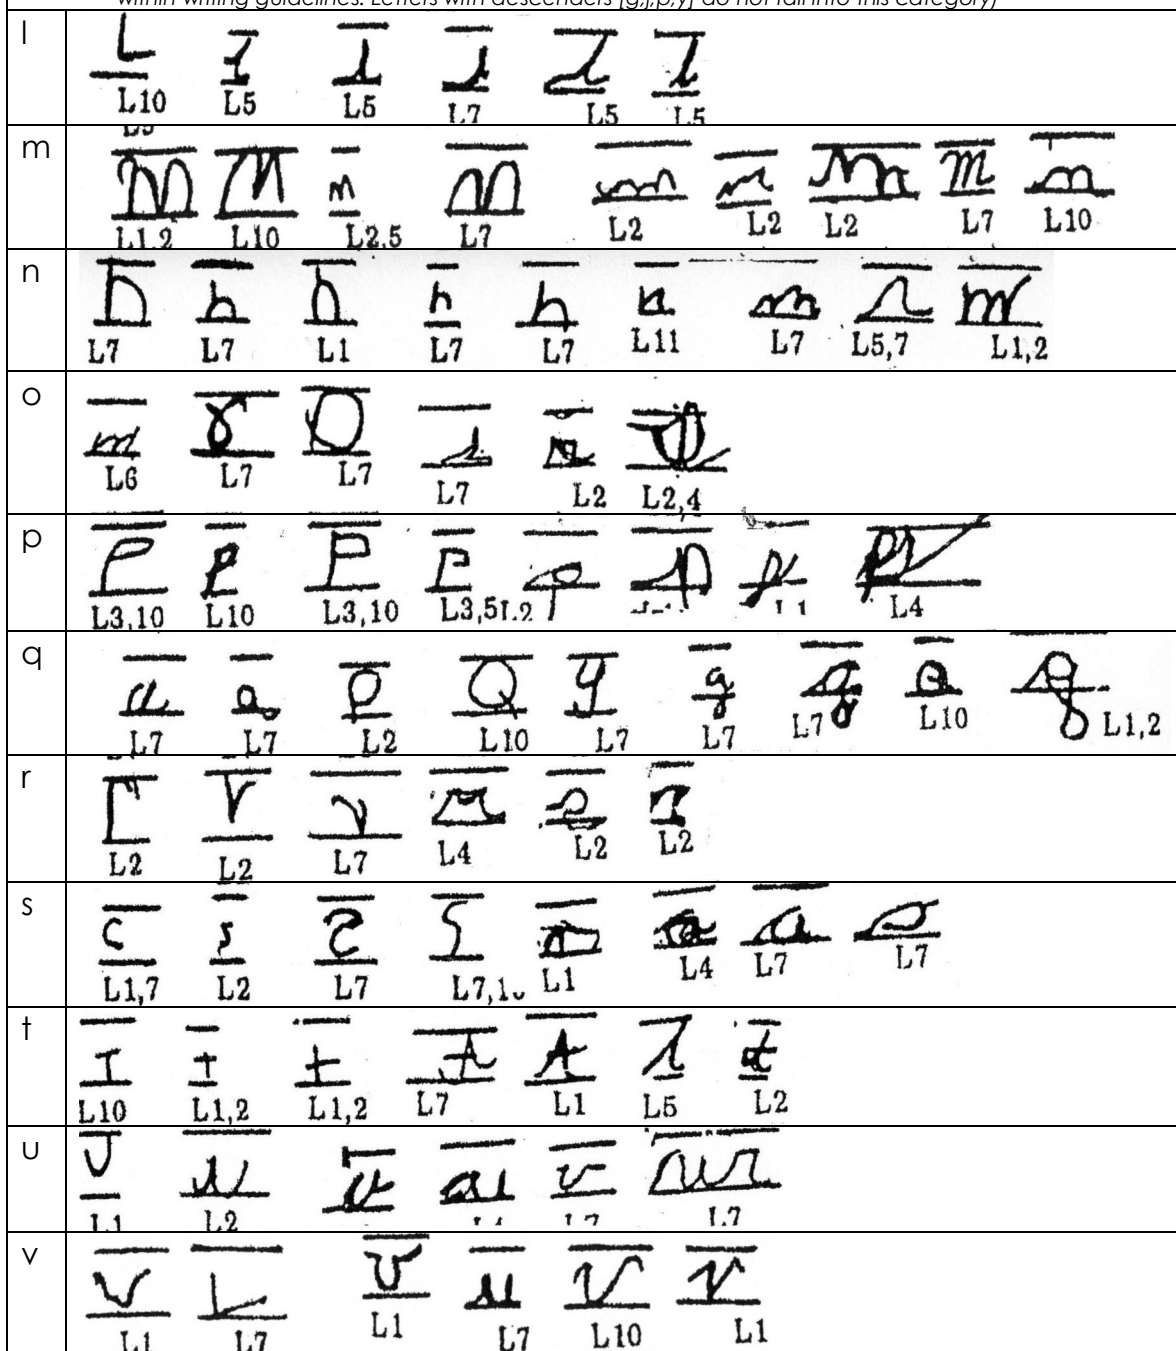 within writing guidelines. Letters with descenders [g,j,p,y] do not fall into this category)
l
L10 L5 L5 L7 L5 L5
m
L1,2 L10 L2,5 L7 L2 L2 L2 L7 L10
n
L7 L7 L1 L7 L7 L11 L7 L5,7 L1,2
o
L6 L7 L7 L7 L2 L2,4
p
L3,10 L10 L3,10 L3,5 L2 L1 L4
q
L7 L7 L2 L10 L7 L7 L7 L10 L1,2
r
L2 L2 L7 L4 L2 L2
s
L1,7 L2 L7 L7,10 L1 L4 L7 L7
t
L10 L1,2 L1,2 L7 L1 L5 L2
u
L1 L2 L7 L7
v
L1 L7 L1 L7 L10 L1